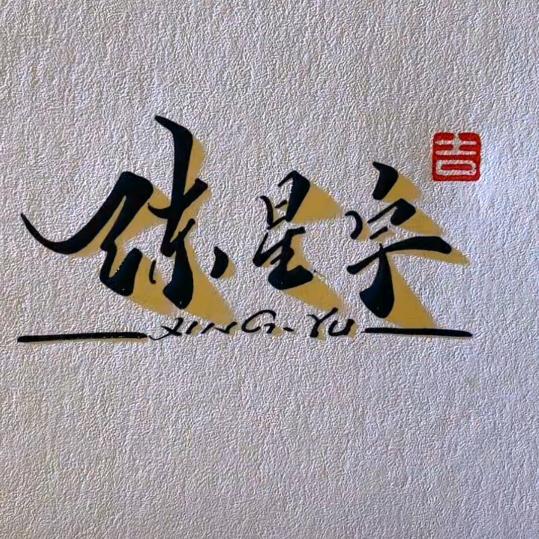 练星宇
吉
XING YU